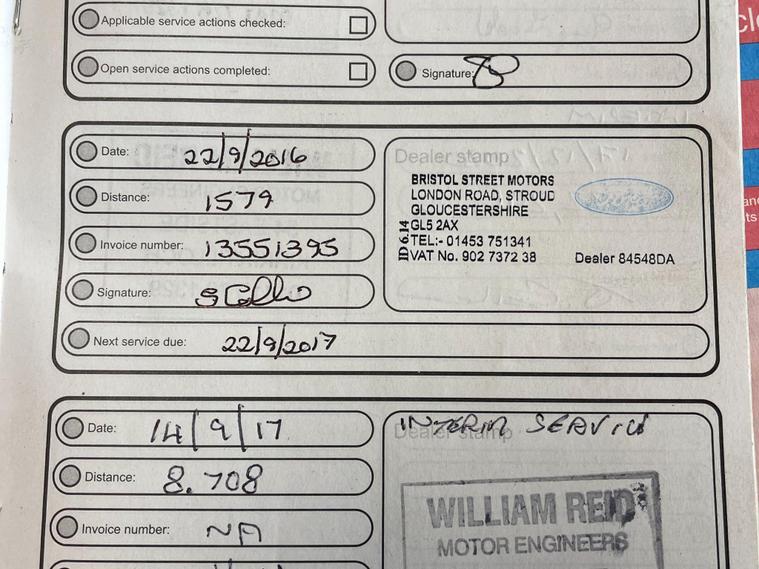 Applicable service actions checked:
Open service actions completed:
Signature:
Date: 22/9/2016
Distance: 1579
Invoice number: 13551395
Signature:
Next service due: 22/9/2017
Dealer stamp
BRISTOL STREET MOTORS
LONDON ROAD, STROUD
GLOUCESTERSHIRE
GL5 2AX
TEL:- 01453 751341
VAT No. 902 7372 38
ID 6.14
Dealer 84548DA
Date: 14/9/17
Distance: 8.708
Invoice number: NA
Dealer stamp
INTERIM SERVICE
WILLIAM REID
MOTOR ENGINEERS